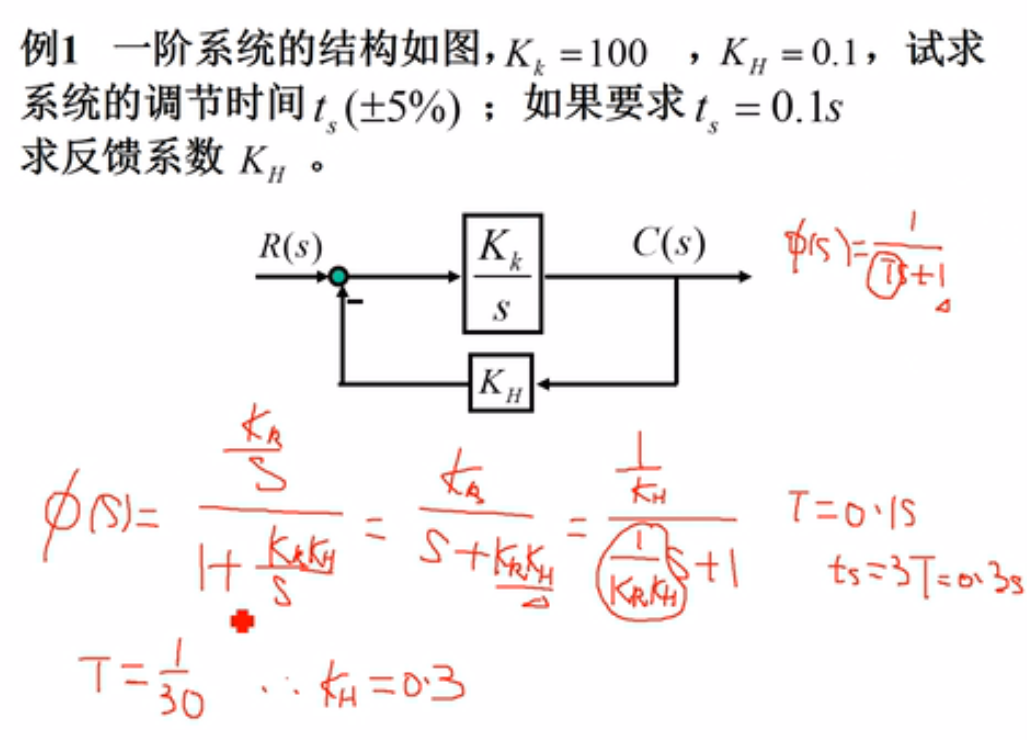 例1 一阶系统的结构如图，K_k = 100 ，K_H = 0.1，试求
系统的调节时间 t_s (±5%) ；如果要求 t_s = 0.1s
求反馈系数 K_H 。
R(s)
K_k / s
C(s)
−
K_H
ϕ(s) = 1 / (Ts+1)
ϕ(s) = (K_k / s) / (1 + K_k K_H / s) = K_k / (s + K_k K_H) = (1 / K_H) / ((1 / K_k K_H) s + 1)
T = 0.1s
ts = 3T = 0.3s
T = 1/30 ∴ K_H = 0.3